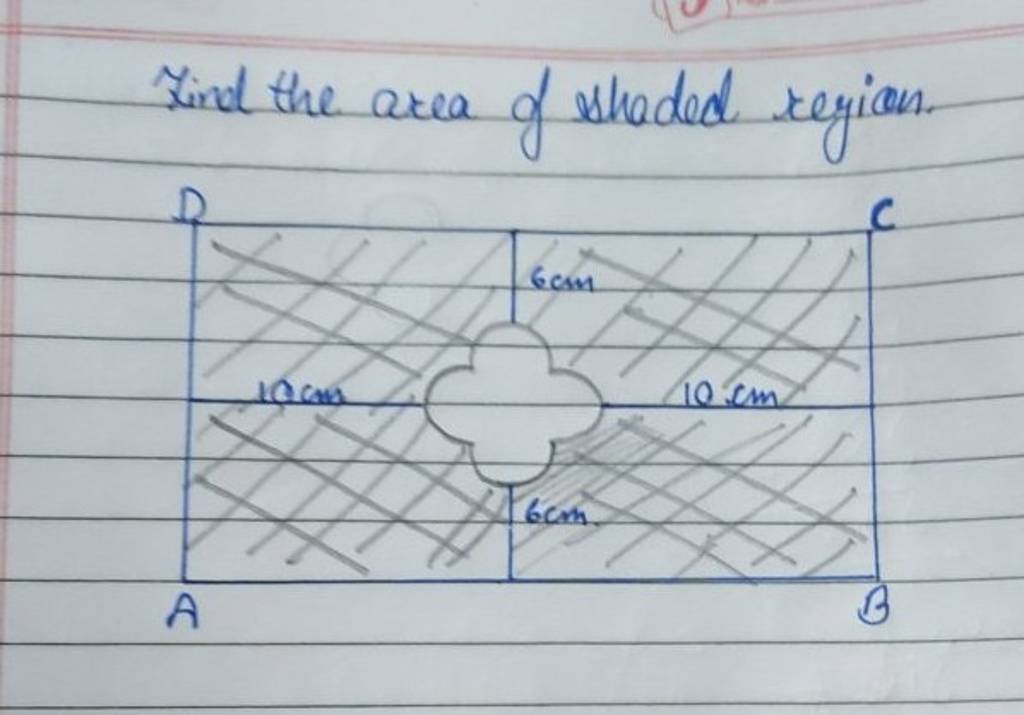 Find the area of shaded region.
D C
6cm
10cm 10 cm
6cm.
A B